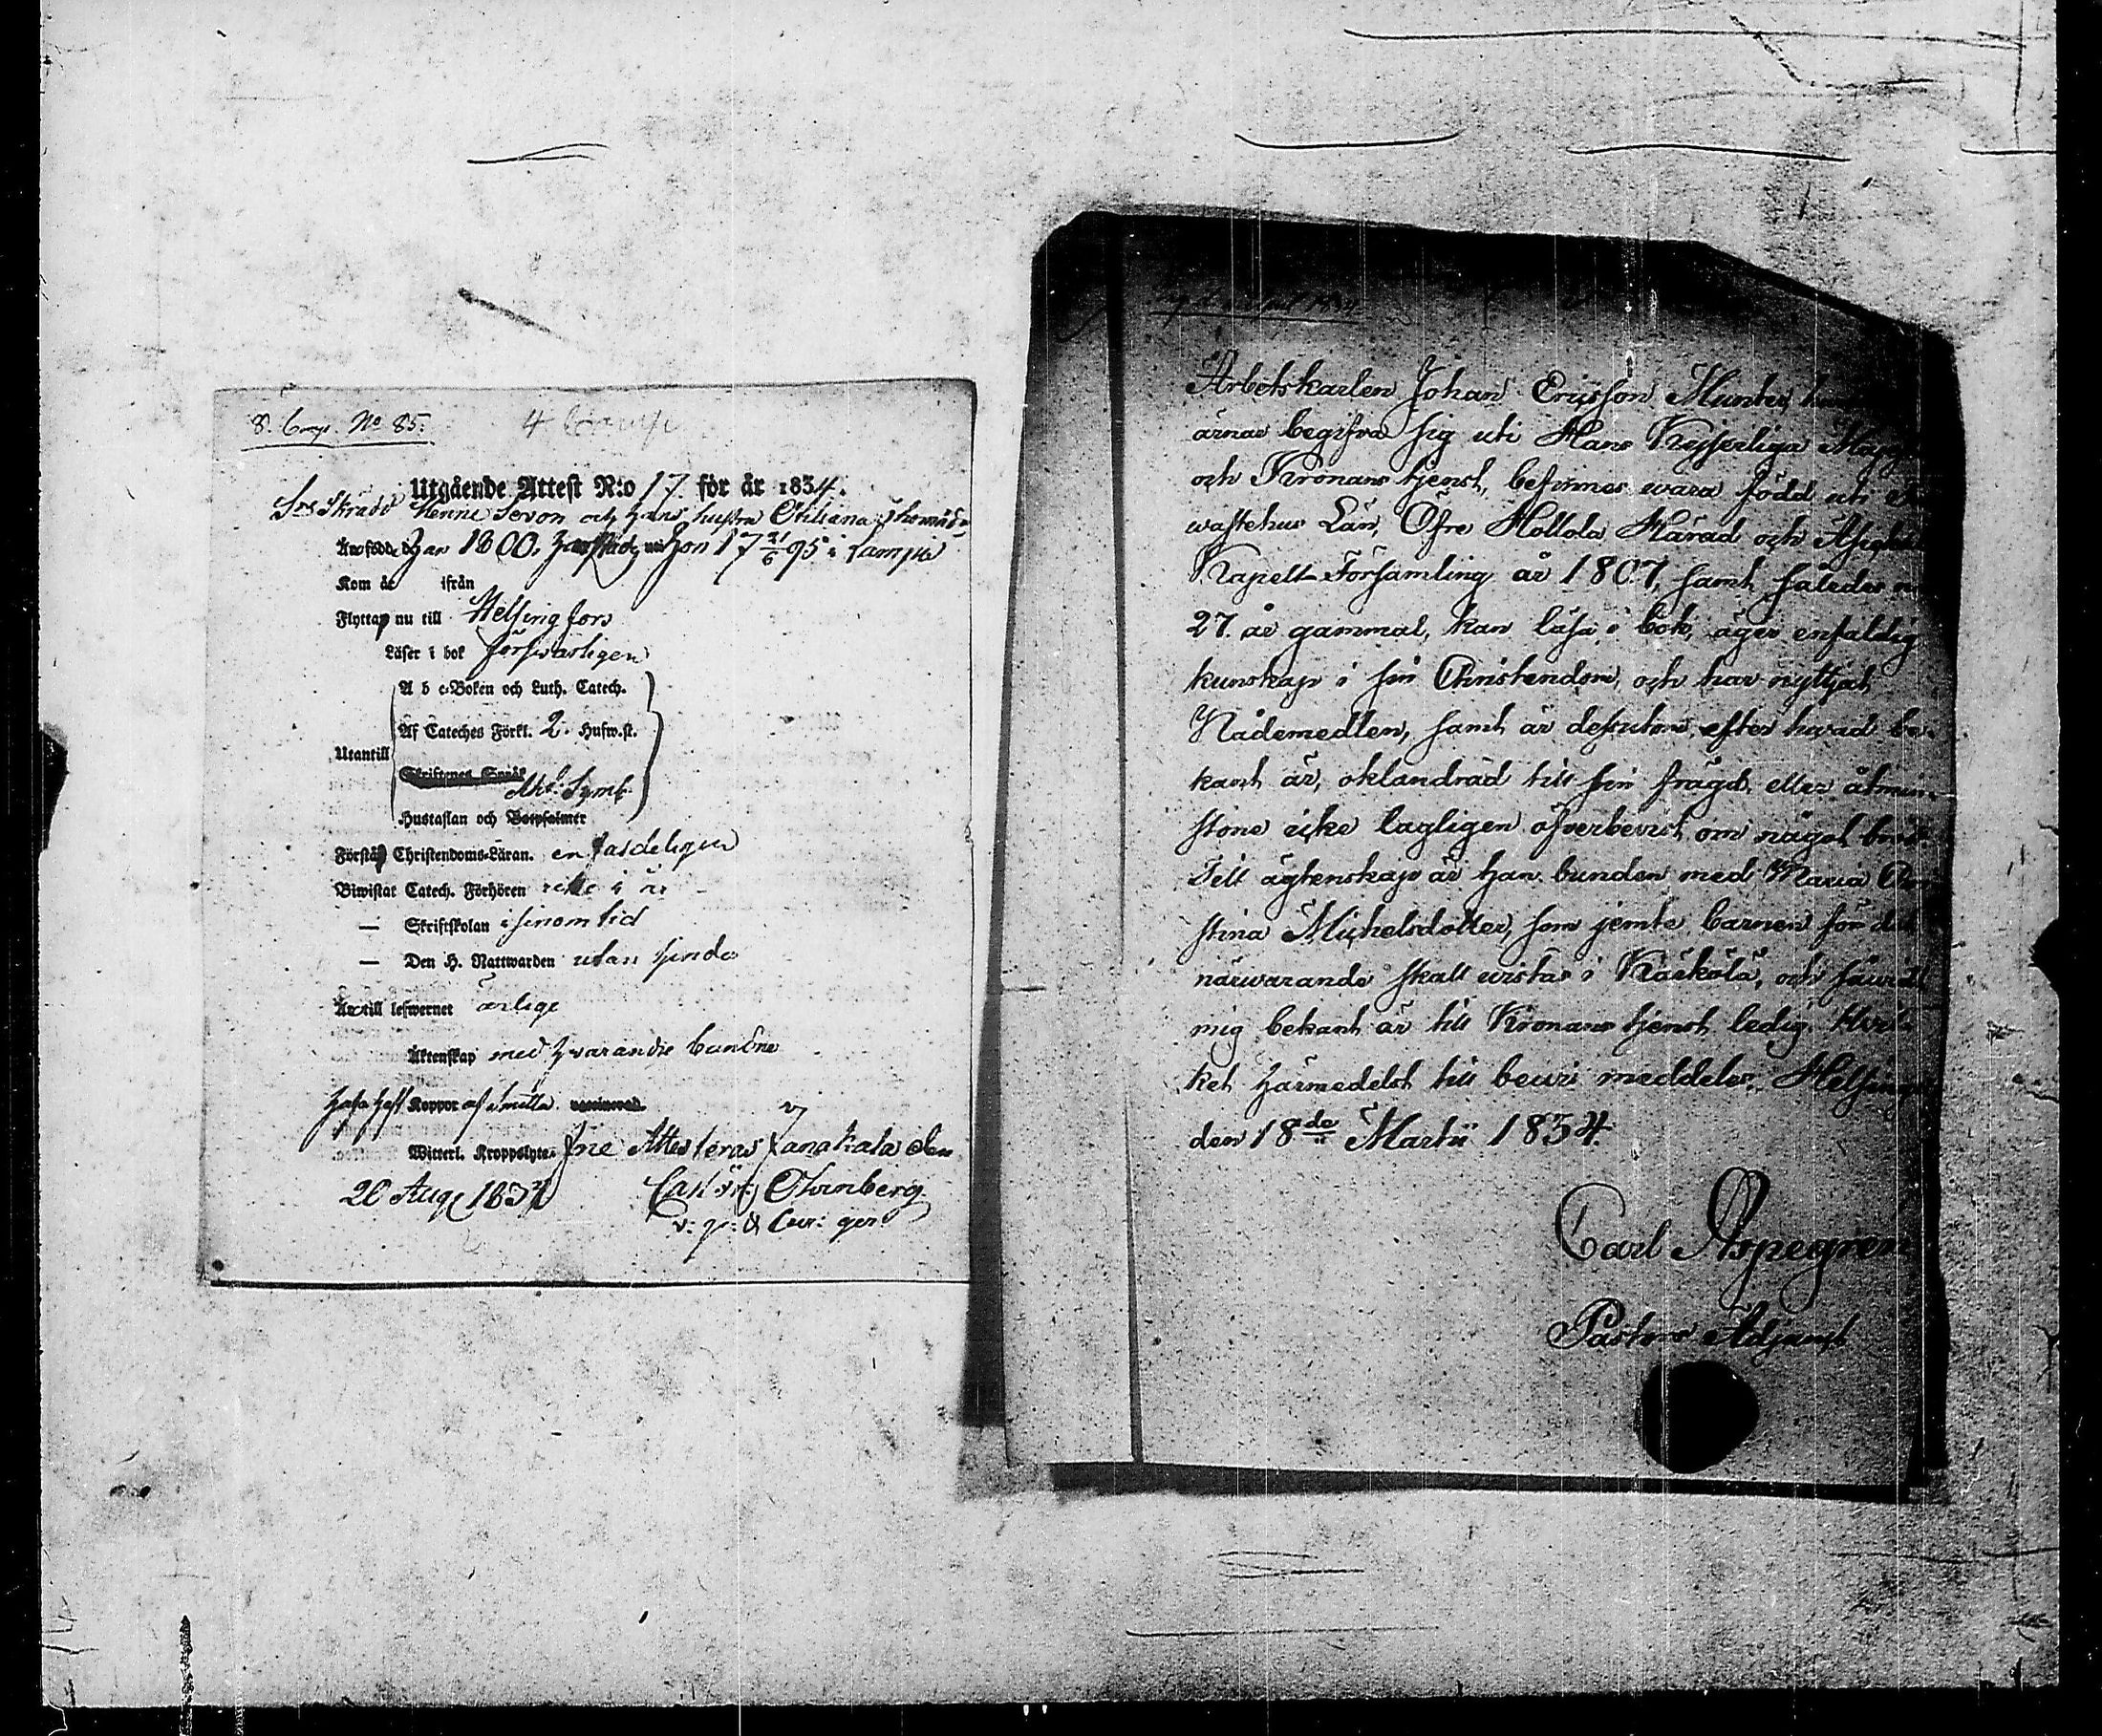 8. Comp. No 85.
Utgående Attest N:o 17. för år 1834.
Henric Sevon och hans hustru
Äro födde Han 1800, Hon 17 21/6 95 i Lampis
Kom år ifrån
Flytta nu till Helsingfors
Läser i bok försvarligen
A b c-Boken och Luth. Catech.
Af Cateches Förkl. 2. Hufw.st.
Utantill
Skriftenes Språk
Ath. Symb.
Hustaflan och Botpsalmer
Förstå Christendoms-Läran. enfaldeligen
Biwistat Catech. Förhören icke i år
— Skriftskolan i sinom tid
— Den H. Nattwarden utan hinder
Äro till lefwernet ärlige
Äktenskap med hvarandre bundne
Hafa haft Koppor af smitta. vaccinerad.
Witterl. Kroppslyte. Ine Attesteras Janakala den
20 Aug 1834
v: p: & Cur: ger.
Arbetskarlen Johan Ericsson Munter,
ärnar begifva sig uti Hans Kejserliga
och Kronans tjenst, befinnes wara född uti
wastehus Län, Öfre Hollola Härad och
Kapell-Församling år 1807, samt således
27. år gammal, kan läsa i bok, äger enfaldig
kunskap i sin Christendom, och har nyttjat
Nådemedlen, samt är dessutom efter hvad be-
kant är, oklandrad till sin frägd, eller åtmin-
stone icke lagligen öfverbevist om något
Till ägtenskap är han bunden med Maria Chri-
stina Michelsdotter, som jemte barnen för det
närwarande skall wistas i Kärkölä, och såvidt
mig bekant är till Kronans tjenst ledig. Hvil-
ket härmedelst till bevis meddeles.
den 18de Martii 1834.
Carl Aspegren
Pastors Adjunct